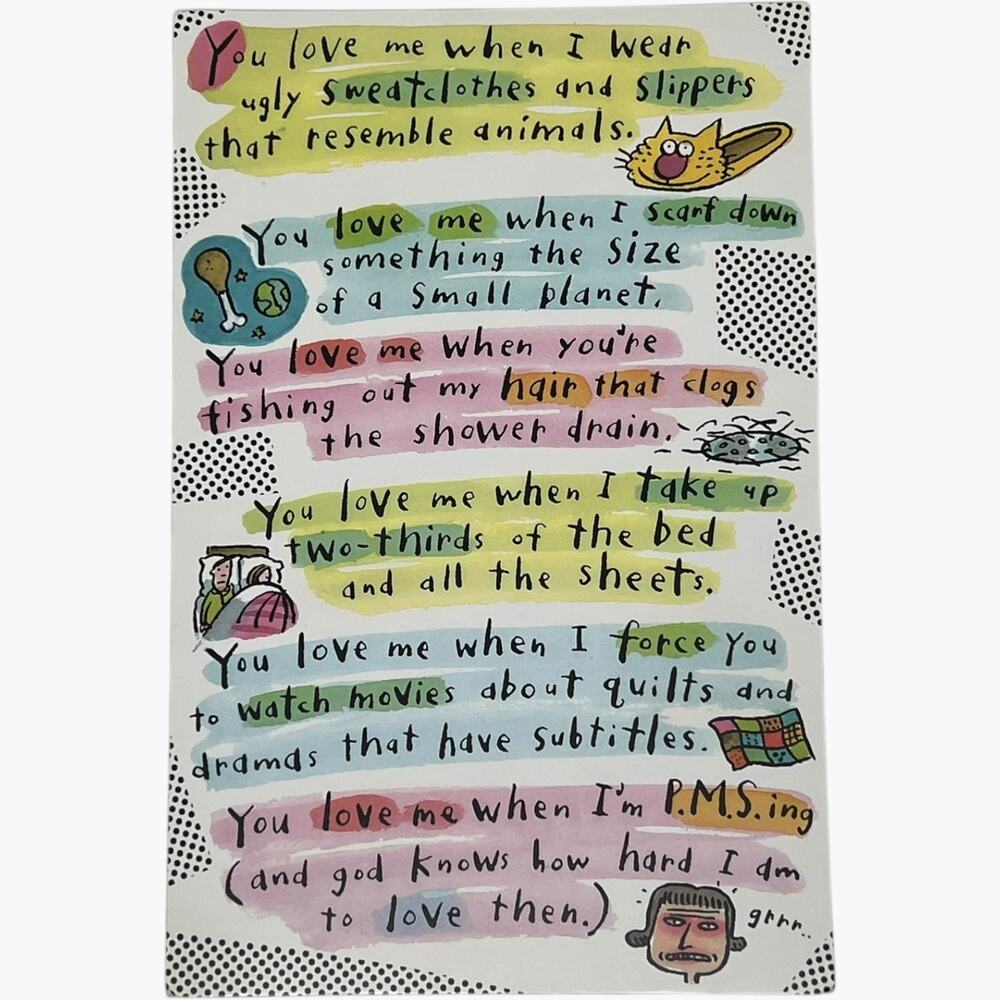 You love me when I wear
ugly sweatclothes and slippers
that resemble animals.
You love me when I scarf down
something the size
of a small planet.
You love me when you're
fishing out my hair that clogs
the shower drain.
You love me when I take up
two-thirds of the bed
and all the sheets.
You love me when I force you
to watch movies about quilts and
dramas that have subtitles.
You love me when I'm P.M.S.ing
(and god knows how hard I am
to love then.)
grrr..